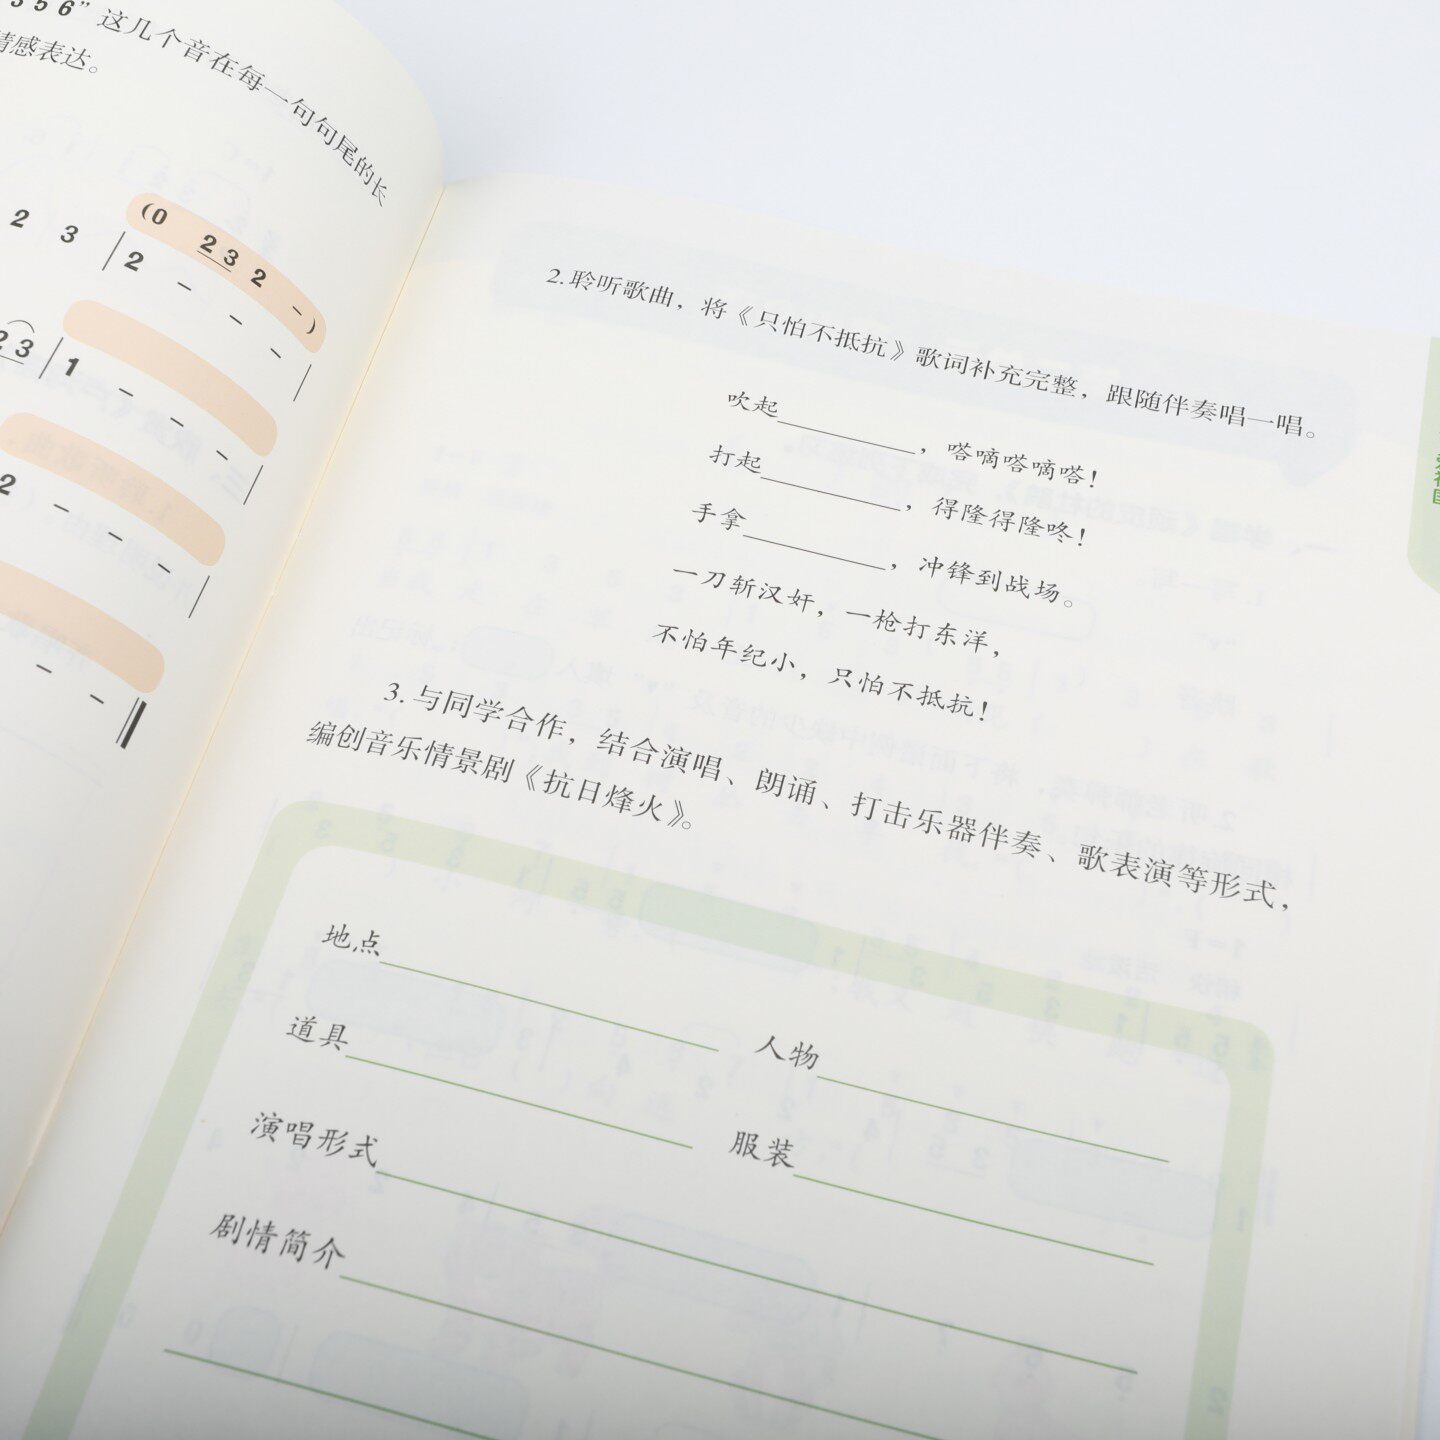 3 5 6”这几个音在每一句句尾的长
情感表达。
(0 2 3 2 -)
2 3 | 2 - - - |
2 3 | 1 - - - |
2 - - - |
- - ‖
2.聆听歌曲，将《只怕不抵抗》歌词补充完整，跟随伴奏唱一唱。
吹起__________，嗒嘀嗒嘀嗒！
打起__________，得隆得隆咚！
手拿__________，冲锋到战场。
一刀斩汉奸，一枪打东洋，
不怕年纪小，只怕不抵抗！
3.与同学合作，结合演唱、朗诵、打击乐器伴奏、歌表演等形式，
编创音乐情景剧《抗日烽火》。
地点__________ 人物__________
道具__________ 服装__________
演唱形式__________
剧情简介__________